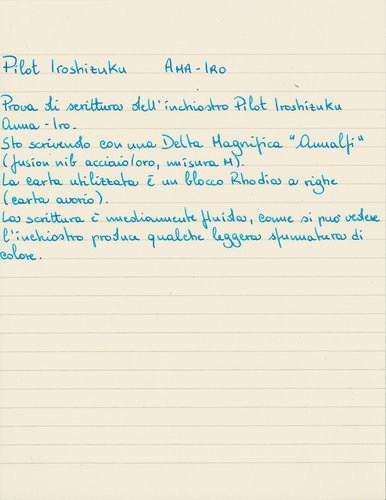 Pilot Iroshizuku AMA-IRO
Prova di scrittura dell'inchiostro Pilot Iroshizuku
Ama-Iro.
Sto scrivendo con una Delta Magnifica "Amalfi"
(fusion nib acciaio/oro, misura M).
La carta utilizzata è un blocco Rhodia a righe
(carta avorio).
La scrittura è mediamente fluida, come si può vedere
l'inchiostro produce qualche leggera sfumatura di
colore.